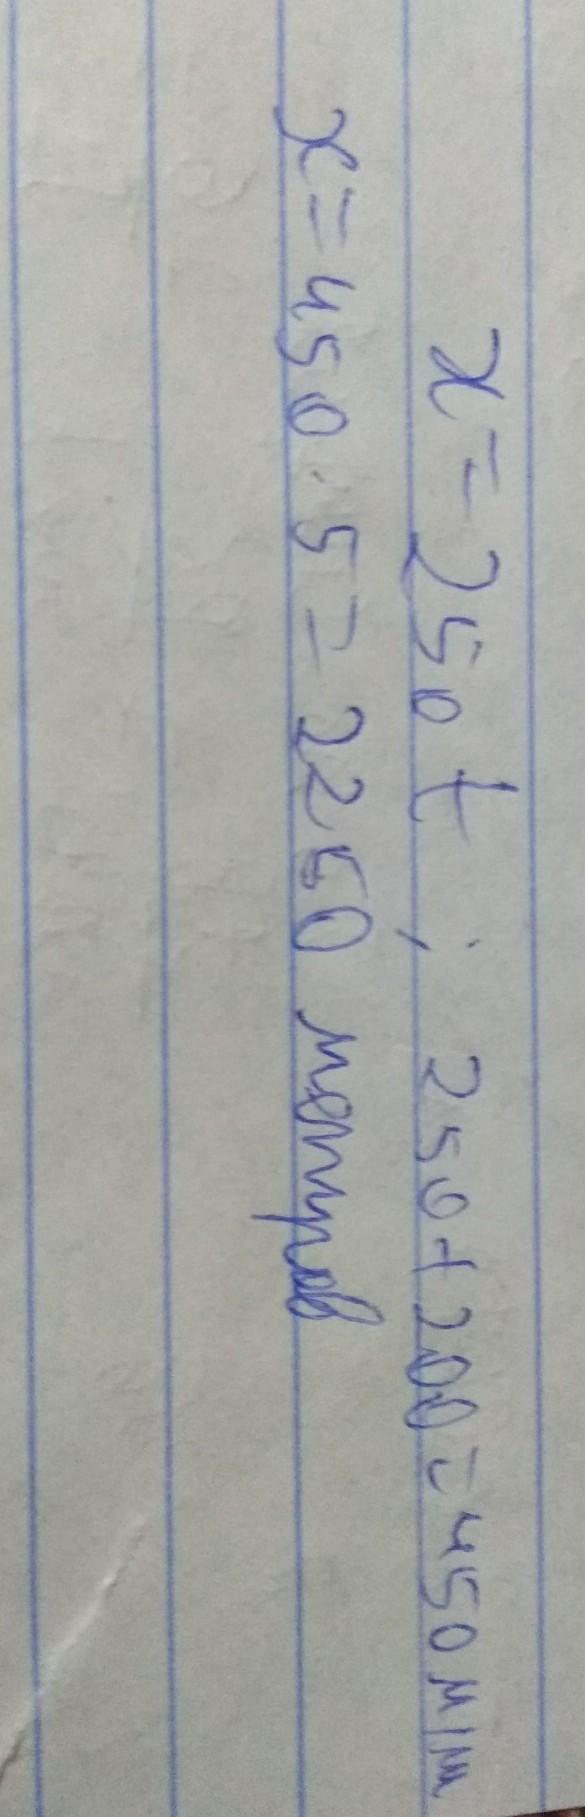 x = 250 t ; 250 + 200 = 450 м/м
x = 450 · 5 = 2250 метров